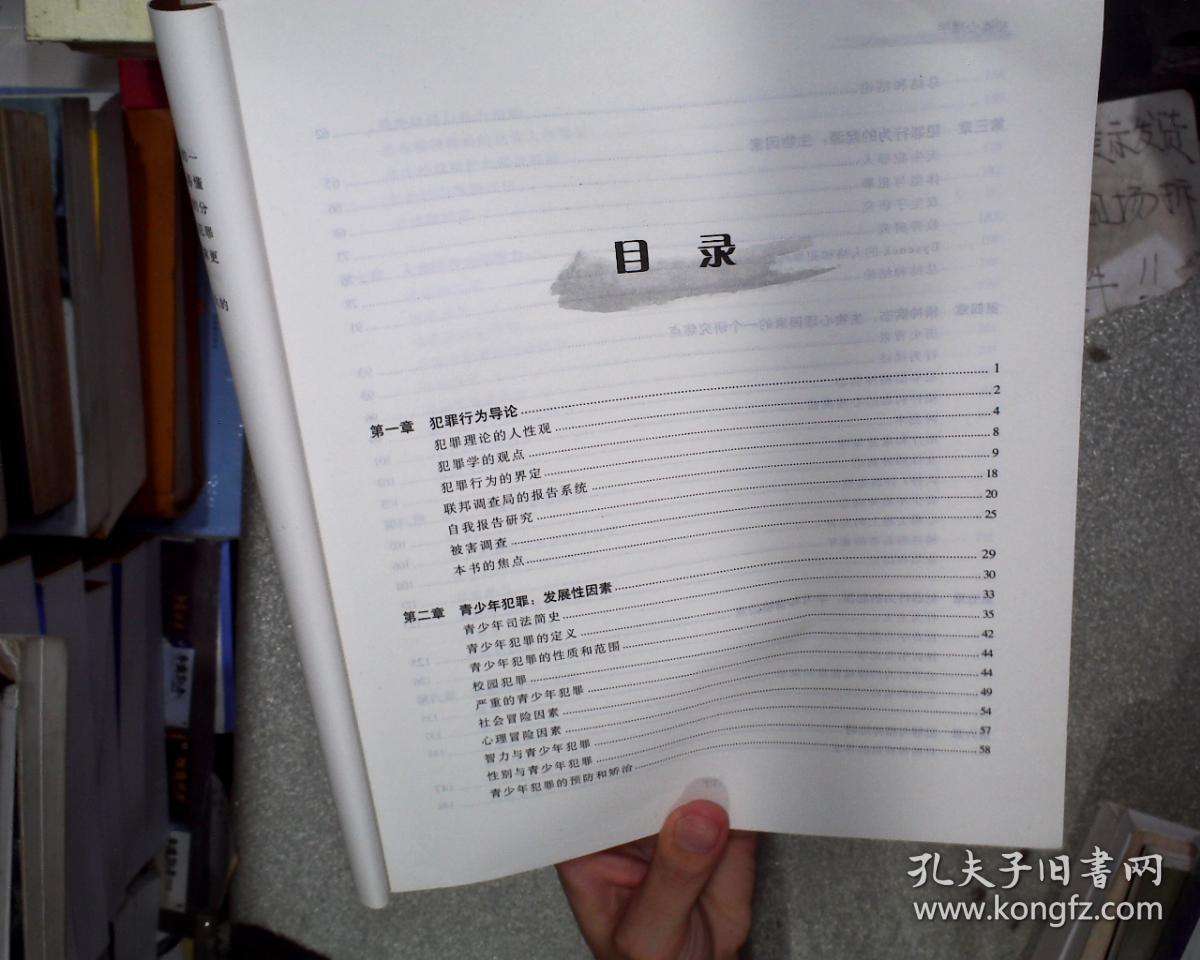 目 录
第一章 犯罪行为导论 1
犯罪理论的人性观 2
犯罪学的观点 4
犯罪行为的界定 8
联邦调查局的报告系统 9
自我报告研究 18
被害调查 20
本书的焦点 25
第二章 青少年犯罪：发展性因素 29
青少年司法简史 30
青少年犯罪的定义 33
青少年犯罪的性质和范围 35
校园犯罪 42
严重的青少年犯罪 44
社会冒险因素 44
心理冒险因素 49
智力与青少年犯罪 54
性别与青少年犯罪 57
青少年犯罪的预防和矫治 58
懂
分
更
的
示发货
场拆
!!
孔夫子旧书网
www.kongfz.com